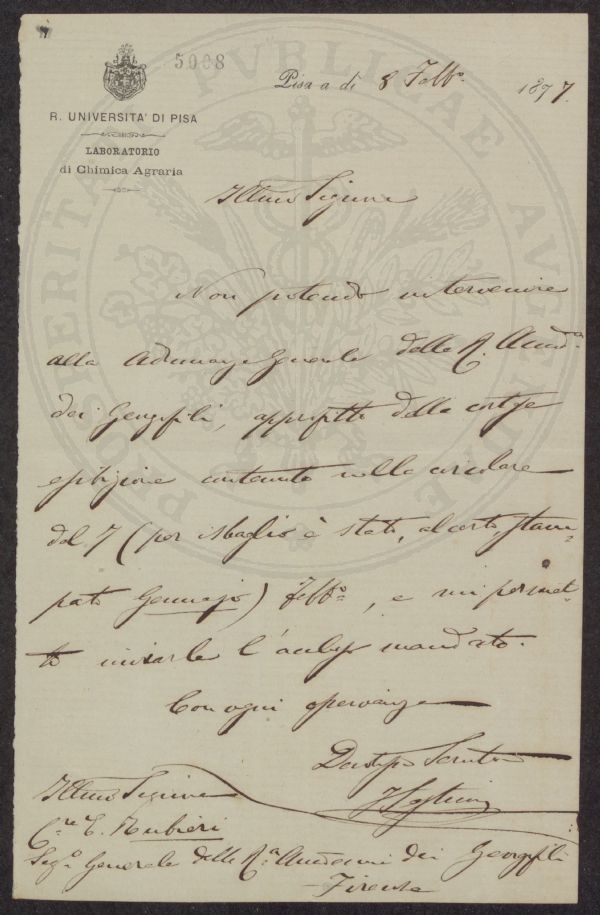 5008
R. UNIVERSITA' DI PISA
LABORATORIO
di Chimica Agraria
Pisa a dì 8 Febbº. 1877.
Illmo Signore
Non potendo intervenire
alla adunanza Generale della R. Accadª.
dei Georgofili, approfitto della cortese
esibizione contenuta nella circolare
del 7 (per isbaglio è stato, al certo, stam-
pato Gennajo) Febbº, e mi permet-
to inviarle l'accluso mandato.
Con ogni osservanza
Devotisso Servitore
Illmo Signore
C.re E. Rubieri
Segº Generale della Rª. Accademia dei Georgofili
Firenze
PROSPERITATI PVBLICAE AVGENDAE